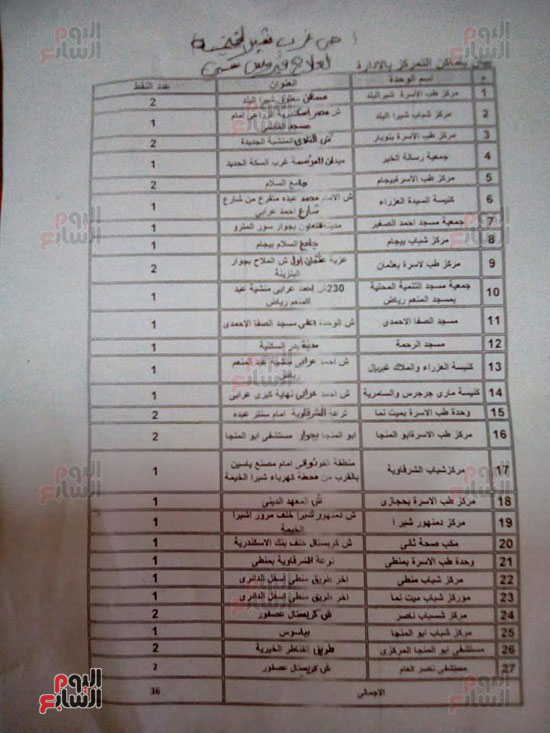 بيان باماكن التمركز بالادارة
م اسم الوحدة العنوان عدد النقط
1 مركز طب الأسرة شبراالبلد مساكن شبرا البلد 2
2 مركز شباب شبرا البلد ش مصر اسكندرية الزراعى امام مسجد 1
3 مركز طب الأسرة بنوبار ش المنشية الجديدة 2
4 جمعية رسالة الخير ميدان المؤسسة غرب السكة الحديد 1
5 مركز طب الأسرة بيجام جامع السلام 2
6 كنيسة السيدة العزراء ش الامام محمد عبده متفرع من شارع
شارع احمد عرابى 1
7 جمعية مسجد احمد الصغير بجوار سور المترو 1
8 مركز شباب بيجام جامع السلام بيجام 1
9 مركز طب لاسرة بعثمان عزبة عثمان اول ش الملاح بجوار
البنزينة 2
10 جمعية مسجد التنمية المحلية
بمسجد المنعم رياض 230ش احمد عرابى منشية عبد
المنعم رياض 1
11 مسجد الصفا الاحمدى ش الوحدة اعلى مسجد الصفا الاحمدى 1
12 مسجد الرحمة مدينة بدر السكنية 1
13 كنيسة العزراء والملاك غبريال ش احمد عرابى منشية عبد المنعم
رياض 1
14 كنيسة مارى جرجرس والسامرية ش احمد عرابى نهاية كبرى عرابى 1
15 وحدة طب الاسرة بميت نما ترعة الشرقاوية امام سنتر عبده 2
16 مركز طب الاسرةابو المنجا ابو المنجا بجوار مستشفى ابو المنجا 2
17 مركزشباب الشرقاوية منطقة امام مصنع ياسين
بالقرب من محطة كهرباء شبرا الخيمة 1
18 مركز طب الاسرة بحجازى ش المعهد الدينى 1
19 مركز دمنهور شبرا ش دمنهور شبرا خلف مرور اشبرا
الخيمة 1
20 مكب صحة ثانى ش كريستال خلف بنك الاسكندرية 1
21 وحدة طب الاسرة بمنطى ترعة الشرقاوية بمنطى 1
22 مركز شباب منطى اخر طريق منطى اسفل الدائرى 1
23 مركز شباب ميت نما اخر طريق منطى اسفل الدائرى 1
24 مركز شباب ناصر ش كريستال عصفور 2
25 مركز شباب ابو المنجا بيسوس 1
26 مستشفى ابو المنجا المركزى طريق القناطر الخيرية 2
27 مستشفى ناصر العام ش كريستال عصفور 2
الاجمالى 36
اليوم السابع